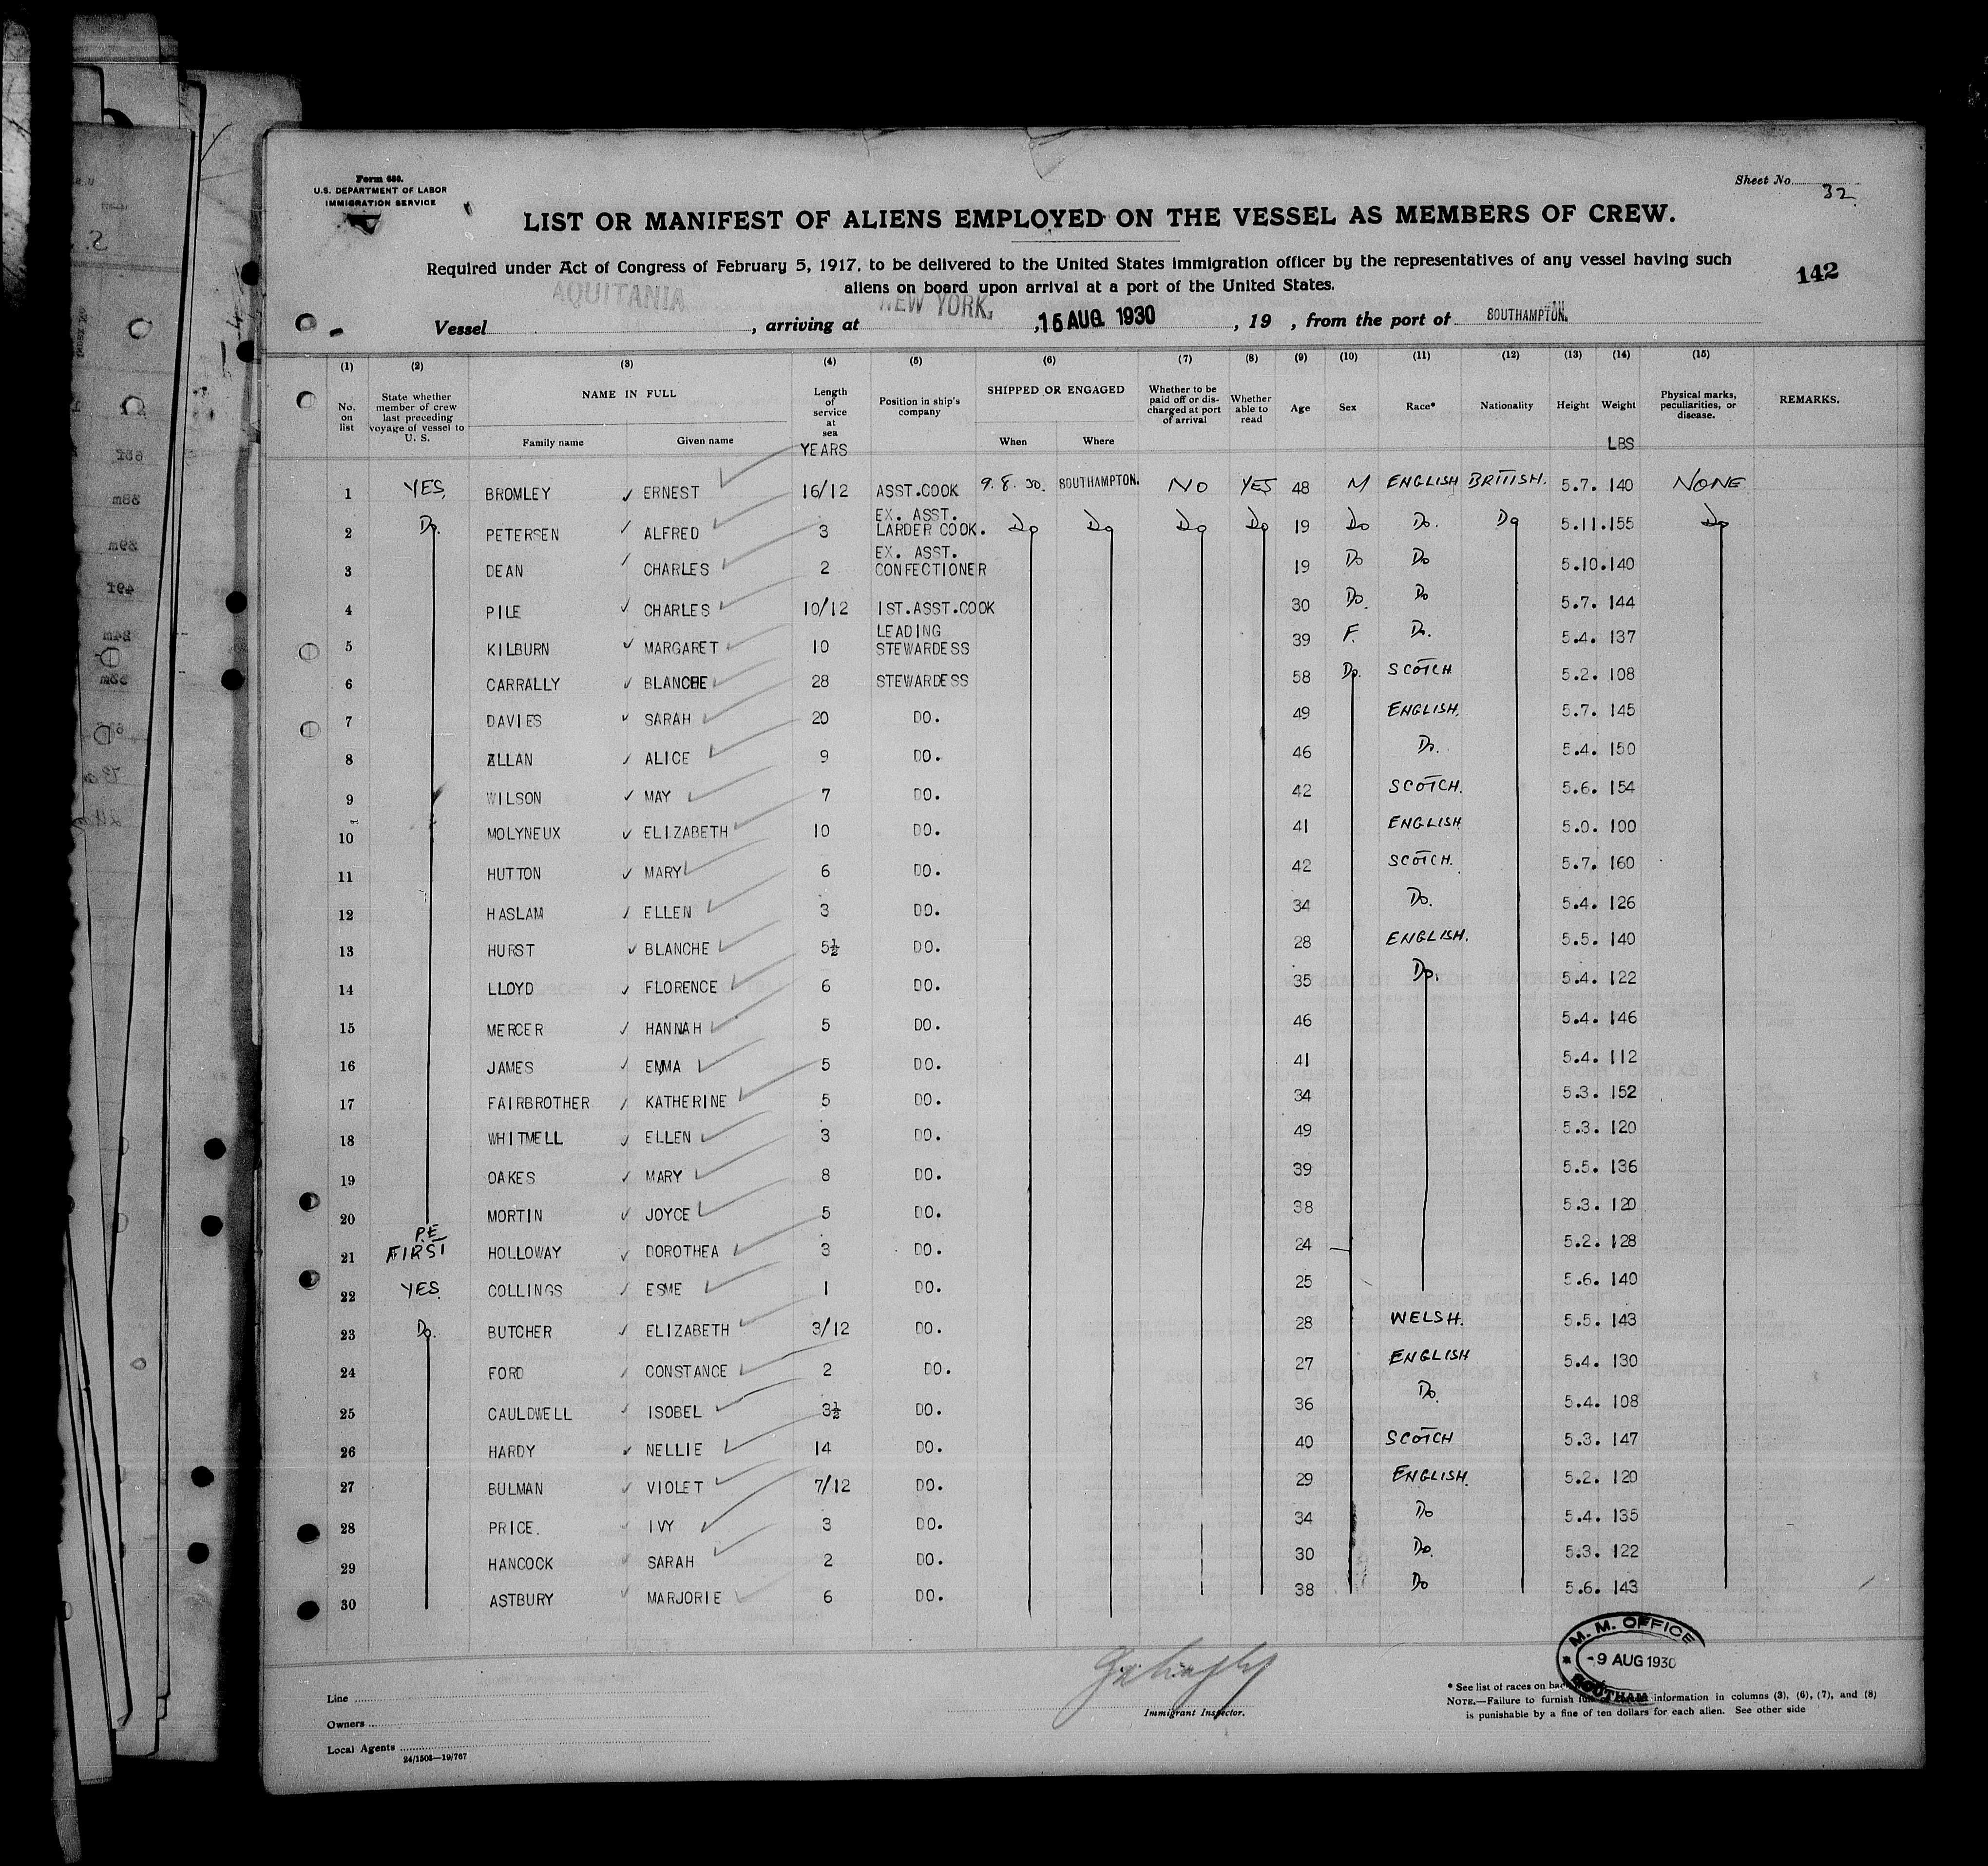 Form 680.
U.S. DEPARTMENT OF LABOR
IMMIGRATION SERVICE
Sheet No. 32
LIST OR MANIFEST OF ALIENS EMPLOYED ON THE VESSEL AS MEMBERS OF CREW.
Required under Act of Congress of February 5, 1917, to be delivered to the United States immigration officer by the representatives of any vessel having such
aliens on board upon arrival at a port of the United States.
142
Vessel AQUITANIA, arriving at NEW YORK, 15 AUG. 1930, 19 , from the port of SOUTHAMPTON.
(1) (2) (3) (4) (5) (6) (7) (8) (9) (10) (11) (12) (13) (14) (15)
No. on list | State whether member of crew last preceding voyage of vessel to U. S. | NAME IN FULL | Length of service at sea | Position in ship's company | SHIPPED OR ENGAGED | Whether to be paid off or discharged at port of arrival | Whether able to read | Age | Sex | Race* | Nationality | Height | Weight | Physical marks, peculiarities, or disease. | REMARKS.
Family name | Given name | YEARS | When | Where | LBS
1 YES BROMLEY ERNEST 16/12 ASST.COOK 9.8.30. SOUTHAMPTON. NO YES 48 M ENGLISH BRITISH. 5.7. 140 NONE
2 Do. PETERSEN ALFRED 3 EX. ASST. LARDER COOK. Do Do Do Do 19 Do Do. Do 5.11. 155 Do
3 DEAN CHARLES 2 EX. ASST. CONFECTIONER 19 Do Do 5.10. 140
4 PILE CHARLES 10/12 1ST.ASST.COOK 30 Do. Do 5.7. 144
5 KILBURN MARGARET 10 LEADING STEWARDESS 39 F. Do. 5.4. 137
6 CARRALLY BLANCHE 28 STEWARDESS 58 Do. SCOTCH 5.2. 108
7 DAVIES SARAH 20 DO. 49 ENGLISH. 5.7. 145
8 ALLAN ALICE 9 DO. 46 Do. 5.4. 150
9 WILSON MAY 7 DO. 42 SCOTCH. 5.6. 154
10 MOLYNEUX ELIZABETH 10 DO. 41 ENGLISH 5.0. 100
11 HUTTON MARY 6 DO. 42 SCOTCH. 5.7. 160
12 HASLAM ELLEN 3 DO. 34 Do. 5.4. 126
13 HURST BLANCHE 5½ DO. 28 ENGLISH. 5.5. 140
14 LLOYD FLORENCE 6 DO. 35 Do. 5.4. 122
15 MERCER HANNAH 5 DO. 46 5.4. 146
16 JAMES EMMA 5 DO. 41 5.4. 112
17 FAIRBROTHER KATHERINE 5 DO. 34 5.3. 152
18 WHITMELL ELLEN 3 DO. 49 5.3. 120
19 OAKES MARY 8 DO. 39 5.5. 136
20 MORTIN JOYCE 5 DO. 38 5.3. 120
21 P.E. FIRST HOLLOWAY DOROTHEA 3 DO. 24 5.2. 128
22 YES. COLLINGS ESME 1 DO. 25 5.6. 140
23 Do. BUTCHER ELIZABETH 3/12 DO. 28 WELSH. 5.5. 143
24 FORD CONSTANCE 2 DO. 27 ENGLISH 5.4. 130
25 CAULDWELL ISOBEL 3½ DO. 36 Do. 5.4. 108
26 HARDY NELLIE 14 DO. 40 SCOTCH 5.3. 147
27 BULMAN VIOLET 7/12 DO. 29 ENGLISH. 5.2. 120
28 PRICE. IVY 3 DO. 34 Do 5.4. 135
29 HANCOCK SARAH 2 DO. 30 Do. 5.3. 122
30 ASTBURY MARJORIE 6 DO. 38 Do 5.6. 143
M. M. OFFICE
-9 AUG 1930
SOUTHAM
Line
Owners
Local Agents
24/1508—19/767
Immigrant Inspector.
* See list of races on
NOTE.—Failure to furnish information in columns (3), (6), (7), and (8)
is punishable by a fine of ten dollars for each alien. See other side